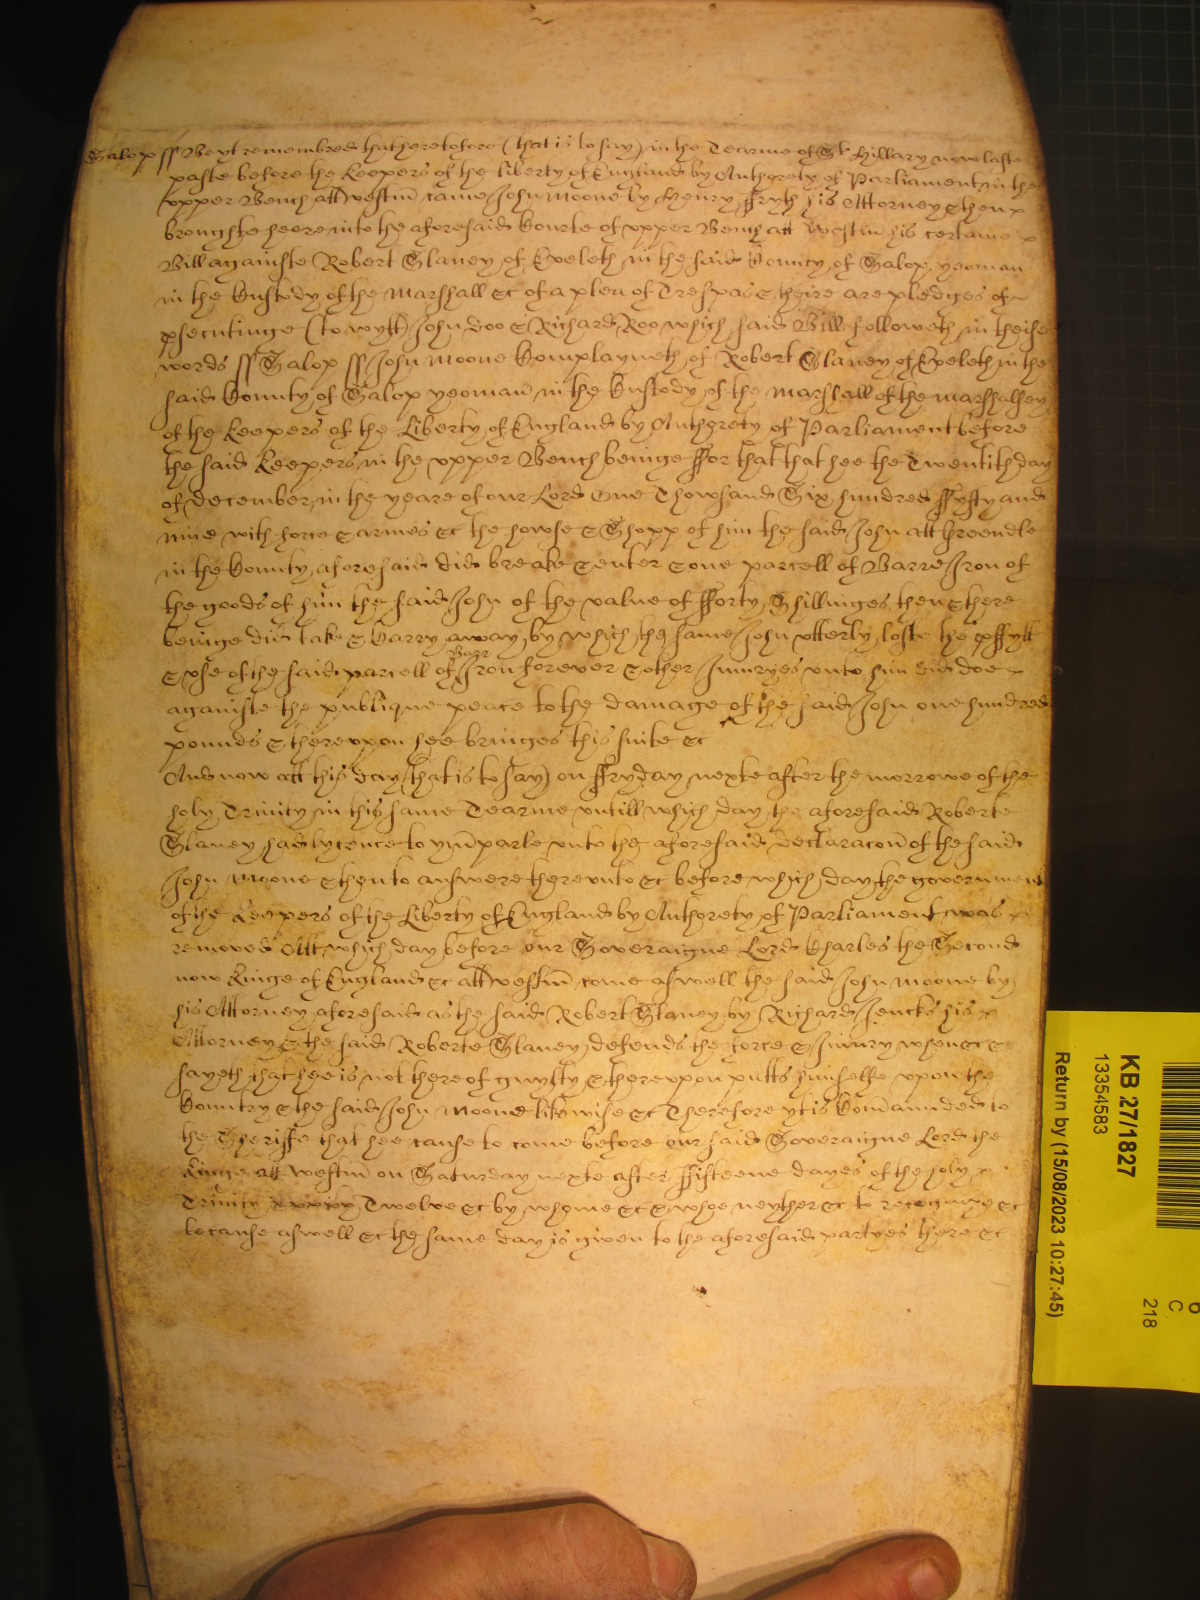 Salop ss Be yt remembred that heretofore (that is to say) in the Tearme of St Hillary now laste
paste before the Keepers of the liberty of England by Authorety of Parliament in the
vpper Bench att Westm̃ came John Moone by Henry ffryth his Attorney & then
broughte heere into the aforesaid Courte of vpper Bench att Westm̃ his certaine
Bill againste Robert Slaney of in the said County of Salop yeoman
in the Custody of the Marshall &c of a plea of Trespas & theire are pledges of
psecutinge (to wytt) John Doo & Richard Roo which said Bill followeth in theise
words ss Salop ss John Moone Complayneth of Robert Slaney of in the
said County of Salop yeoman in the Custody of the Marshall of the Marshalsey
of the Keepers of the Liberty of England by Authorety of Parliament before
the said Keepers in the vpper Bench beinge ffor that that hee the Twentith day
of December in the yeare of our Lord One Thowsand Six hundred ffyfty and
nine with force & armes &c the howse & Shopp of him the said John att
in the County aforesaid did breake & enter & one parcell of Barre Iron of
the goods of him the said John of the value of fforty Shillinges then & there
beinge did take & Carry away by which the same John vtterly loste the pffytt
& vse of the said parcell of Barr Iron forever & other Iniuryes vnto him did doe
againste the publique peace to the damage of the said John one hundred
pounds & therevpon hee bringes this suite &c
And now att this day (that is to say) on ffryday nexte after the morrowe of the
holy Trinity in this same Tearme vntill which day the aforesaid Roberte
Slaney had lycence to ymparle vnto the aforesaid declaracon̄ of the said
John Moone & then to answere therevnto &c before which day the government
of the Keepers of the Liberty of England by Authorety of Parliament was
removed Att which day before our Soveraigne Lord Charles the Second
now Kinge of England &c att Westm̃ come aswell the said John Moone by
his Attorney aforesaid as the said Robert Slaney by Richard Jencks his
Attorney & the said Roberte Slaney defends the force & Iniury when &c &
sayeth that hee is not thereof guylty & therevpon putts himselfe vpon the
Country & the said John Moone likewise &c Therefore yt is Com̄aunded to
the Sheriffe that hee cause to come before our said Soveraigne Lord the
Kinge att Westm̃ on Saturday nexte after ffifteene dayes of the holy
Trinity Twelve &c by whome &c & whoe neyther &c to recognize &c
because aswell &c the same day is given to the aforesaid partyes there &c
KB 27/1827
13354583
Return by (15/08/2023 10:27:45)
6
C
218